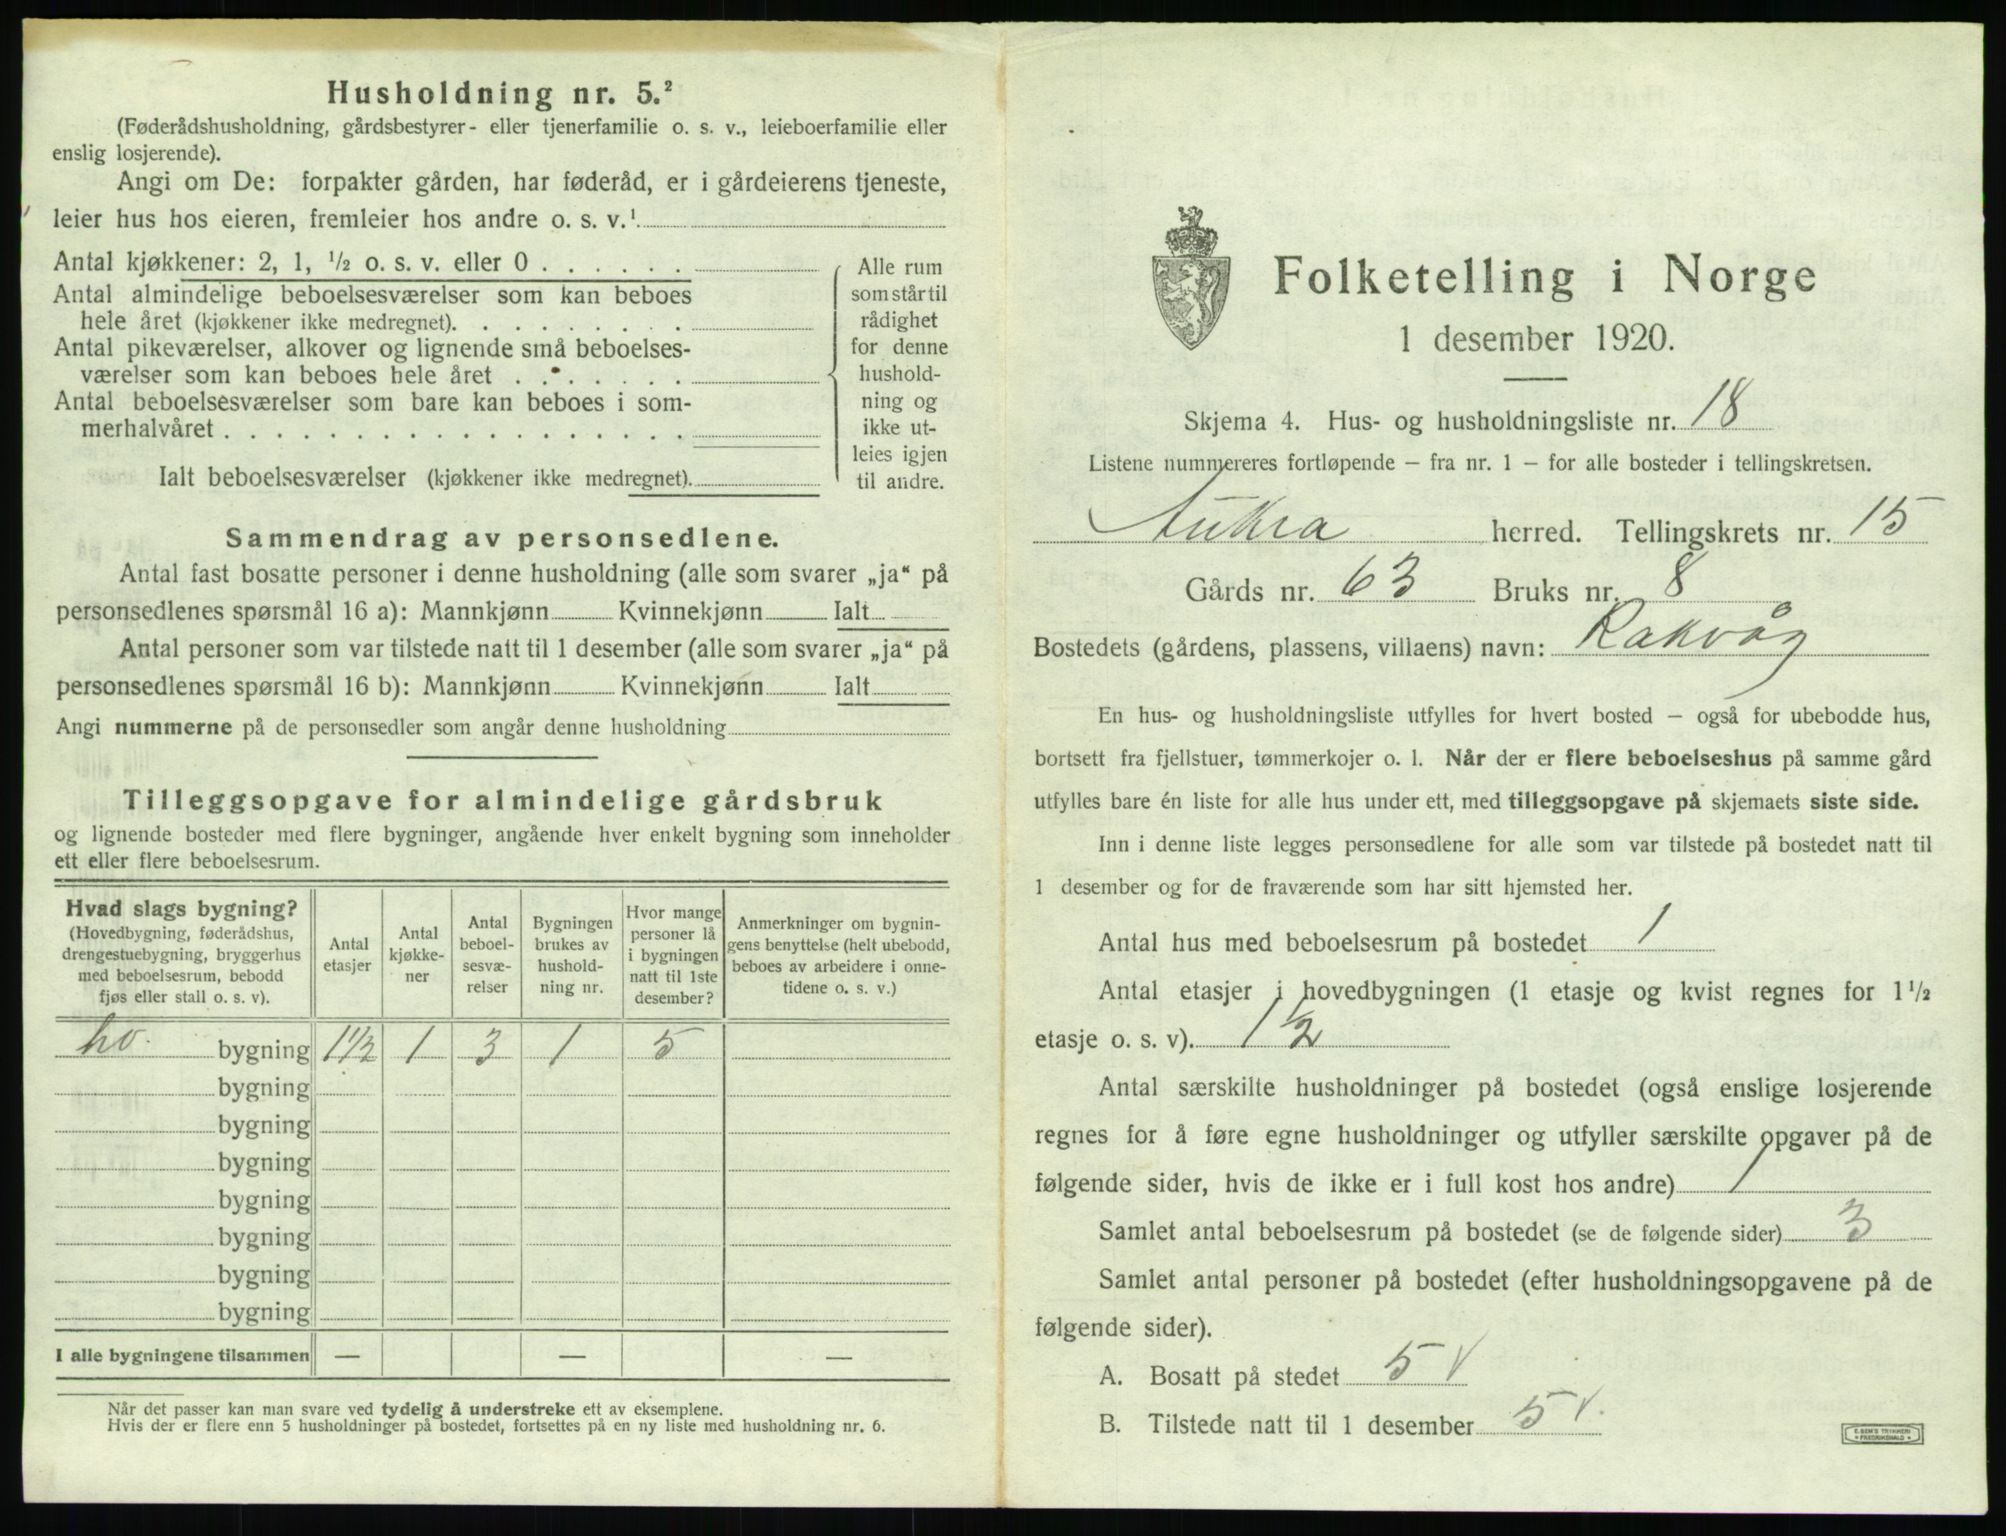 Husholdning nr. 5.²
(Føderådshusholdning, gårdsbestyrer- eller tjenerfamilie o. s. v., leieboerfamilie eller
enslig losjerende).
Angi om De: forpakter gården, har føderåd, er i gårdeierens tjeneste,
leier hus hos eieren, fremleier hos andre o. s. v.¹
Antal kjøkkener: 2, 1, ½ o. s. v. eller 0 . . . . . .
Antal almindelige beboelsesværelser som kan beboes
hele året (kjøkkener ikke medregnet). . . . . . . . .
Antal pikeværelser, alkover og lignende små beboelses-
værelser som kan beboes hele året . . . . . . .
Antal beboelsesværelser som bare kan beboes i som-
merhalvåret . . . . . . . . . . . . . . . . . .
Ialt beboelsesværelser (kjøkkener ikke medregnet).
Alle rum
som står til
rådighet
for denne
hushold-
ning og
ikke ut-
leies igjen
til andre.
Sammendrag av personsedlene.
Antal fast bosatte personer i denne husholdning (alle som svarer „ja“ på
personsedlenes spørsmål 16 a): Mannkjønn Kvinnekjønn Ialt
Antal personer som var tilstede natt til 1 desember (alle som svarer „ja“ på
personsedlenes spørsmål 16 b): Mannkjønn Kvinnekjønn Ialt
Angi nummerne på de personsedler som angår denne husholdning
Tilleggsopgave for almindelige gårdsbruk
og lignende bosteder med flere bygninger, angående hver enkelt bygning som inneholder
ett eller flere beboelsesrum.
Hvad slags bygning?
(Hovedbygning, føderådshus,
drengestuebygning, bryggerhus
med beboelsesrum, bebodd
fjøs eller stall o. s. v).
Antal
etasjer
Antal
kjøkke-
ner
Antal
beboel-
sesvæ-
relser
Bygningen
brukes av
hushold-
ning nr.
Hvor mange
personer lå
i bygningen
natt til 1ste
desember?
Anmerkninger om bygnin-
gens benyttelse (helt ubebodd,
beboes av arbeidere i onne-
tidene o. s. v.)
ho. bygning 1½ 1 3 1 5
bygning
bygning
bygning
bygning
bygning
bygning
bygning
I alle bygningene tilsammen — — —
Når det passer kan man svare ved tydelig å understreke ett av eksemplene.
Hvis der er flere enn 5 husholdninger på bostedet, fortsettes på en ny liste med husholdning nr. 6.
Folketelling i Norge
1 desember 1920.
Skjema 4. Hus- og husholdningsliste nr. 18
Listene nummereres fortløpende – fra nr. 1 – for alle bosteder i tellingskretsen.
Aukra herred. Tellingskrets nr. 15
Gårds nr. 63 Bruks nr. 8
Bostedets (gårdens, plassens, villaens) navn: Rakvåg
En hus- og husholdningsliste utfylles for hvert bosted – også for ubebodde hus,
bortsett fra fjellstuer, tømmerkojer o. l. Når der er flere beboelseshus på samme gård
utfylles bare én liste for alle hus under ett, med tilleggsopgave på skjemaets siste side.
Inn i denne liste legges personsedlene for alle som var tilstede på bostedet natt til
1 desember og for de fraværende som har sitt hjemsted her.
Antal hus med beboelsesrum på bostedet 1
Antal etasjer i hovedbygningen (1 etasje og kvist regnes for 1½
etasje o. s. v). 1½
Antal særskilte husholdninger på bostedet (også enslige losjerende
regnes for å føre egne husholdninger og utfyller særskilte opgaver på de
følgende sider, hvis de ikke er i full kost hos andre) 1
Samlet antal beboelsesrum på bostedet (se de følgende sider) 3
Samlet antal personer på bostedet (efter husholdningsopgavene på de
følgende sider).
A. Bosatt på stedet 5 √
B. Tilstede natt til 1 desember 5 √.
E. SEM'S TRYKKERI
FREDRIKSHALD